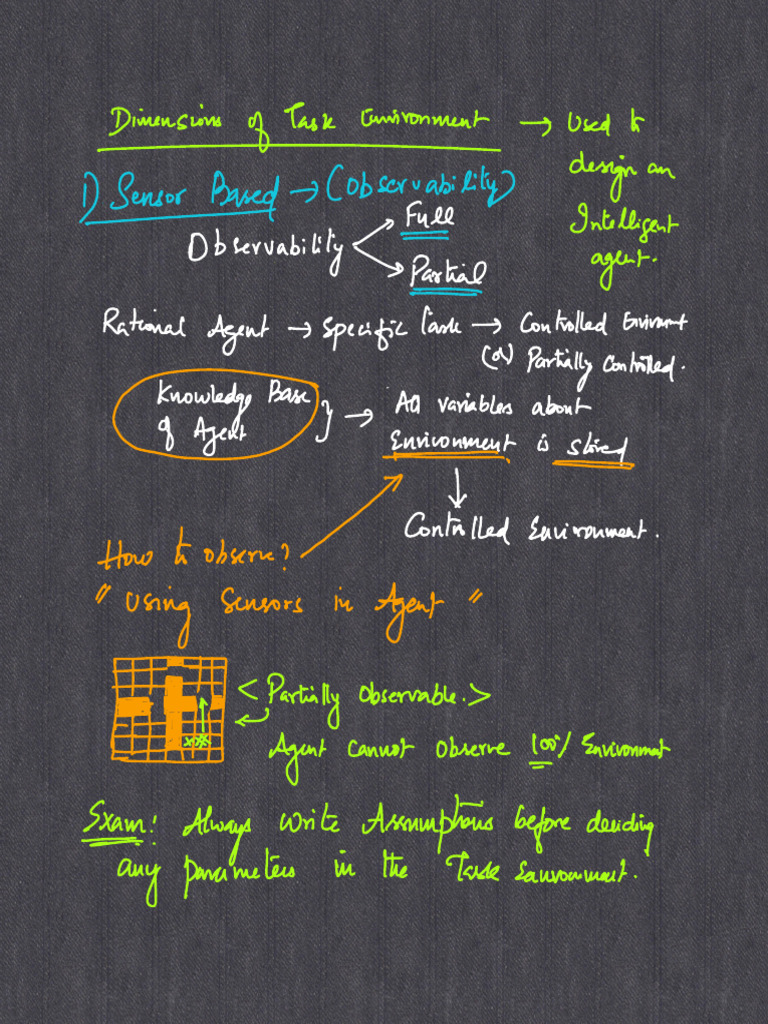 Dimensions of Task Environment → Used to
design an
Intelligent
agent.
1) Sensor Based → (Observability)
Observability
Full
Partial
Rational Agent → Specific Task → Controlled Enviroment
(or) Partially Controlled.
Knowledge Base
of Agent
} → All variables about
Environment is stored
Controlled Environment.
How to observe?
" Using Sensors in Agent "
< Partially Observable. >
Agent cannot observe 100% Environment
Exam! Always write Assumptions before deciding
any parameters in the Task Environment.